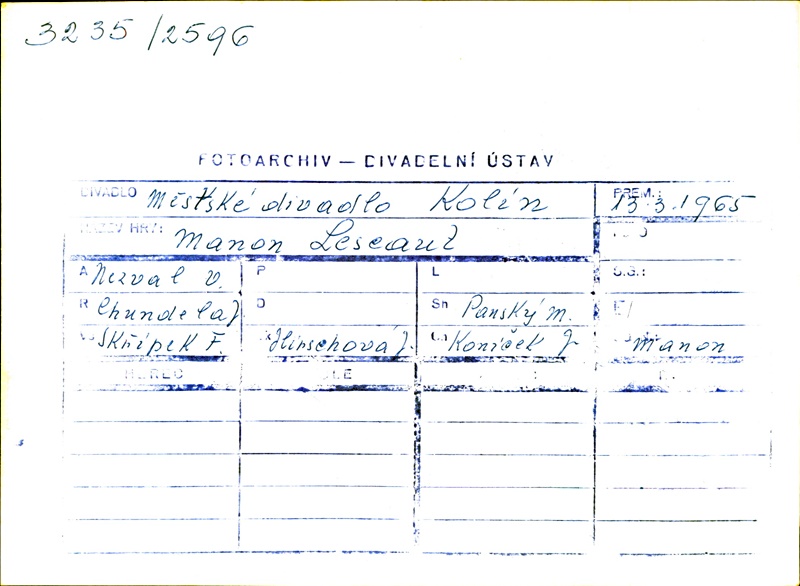 3235/2596
FOTOARCHIV — DIVADELNÍ ÚSTAV
DIVADLO Městské divadlo Kolín PREM.: 13.3.1965
NÁZEV HRY: Manon Lescaut
A Nezval V. P L S.G.:
R Chundela J D Sn Panský M. E/
Skřípek F. Hirschová J. Koníček J Manon
HEREC